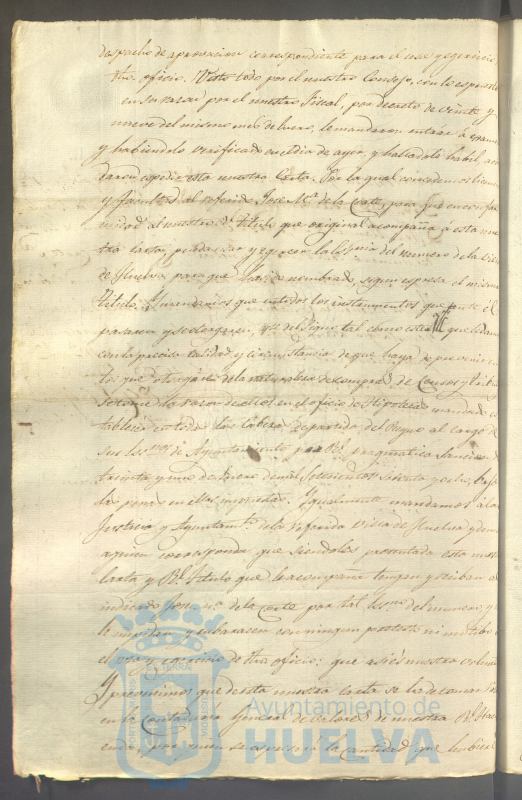 despacho de aprovacion correspondiente para el uso y egercicio
dho. oficio. Visto todo por el nuestro Consejo, con lo espuesto
en su razon por el nuestro Fiscal, por decreto de veinte y
nueve del mismo mes de Enero, le mandaron entrar á examen
y habiendolo verificado en el dia de ayer, y halladole habil, acor
daron espedir esta nuestra Carta. Por la qual concedemos licencia
y facultad al referido José Mª. de la Corte, para que en confor
midad al nuestro Rl. titulo que original acompaña á esta nues
tra carta, pueda usar y egercer la Escnia. del numero de la Villa
de Huelva para que ha sido nombrado, segun espresa el mismo
titulo. Y mandamos que en todos los instrumentos que ante él
pasaren y se otorgaren, use del Signo tal como este que le damos
con la precisa calidad y circunstancia de que haya de prevenir en
los que otorgare de la naturaleza de compras, de Censos y tributos
se tome la razon de ellos en el oficio de Hipotecas mandado es
tablecer en todas las Cabezas de partido del Reyno al cargo de
sus Essnos. de Ayuntamiento por Rl. pragmatica sancion de
treinta y uno de Enero de mil Setecientos sesenta y ocho, bajo
las penas en ella impuestas. Igualmente mandamos á la
Justicia y Ayuntamto. de la referida Villa de Huelva y demas
á quien corresponda que siendoles presentada esta nuestra
Carta y Rl. titulo que la acompaña tengan y reciban al
indicado José Mª. de la Corte por tal Essno. del numero, y no
le impidan y embarazen con ningun pretesto ni motivo
el uso y egercicio de dho. oficio: que asi es nuestra voluntad
Y prevenimos que de esta nuestra carta se ha de tomar razon
en la Contaduria General de Valores de nuestra Rl. Haci
enda, por quien se espresará la cantidad que hubiere
Ayuntamiento de
HUELVA